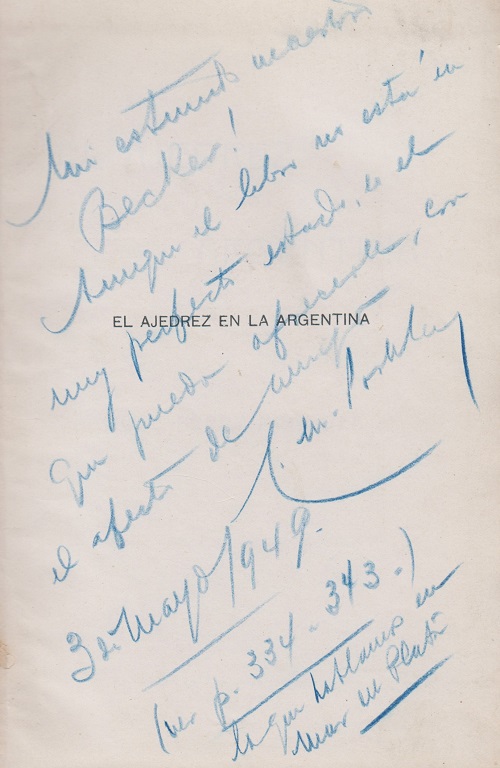 Mi estimado maestro
Becker!
Aunque el libro no está en
muy perfecto estado, es el
que puedo ofrecerle, con
el afecto de amigo
EL AJEDREZ EN LA ARGENTINA
3 de Mayo/1949.
(ver p. 334-343.)
lo que hablamos en
Mar del Plata